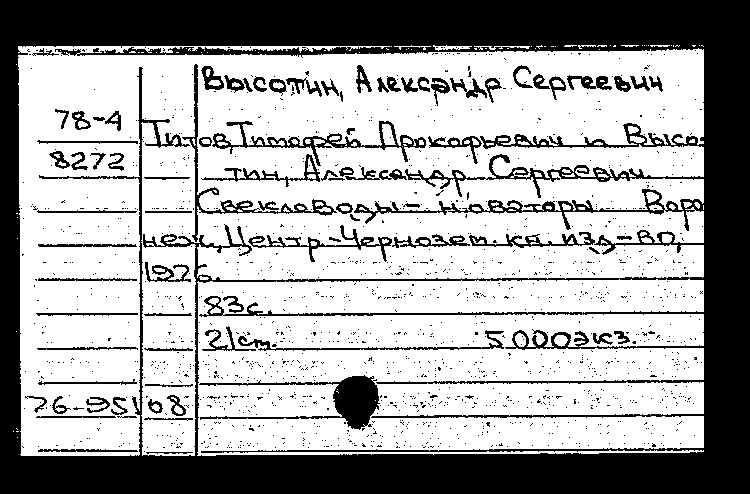 Высотин, Александр Сергеевич
78-4
Титов, Тимофей Прокофьевич и Высо-
8272
тин, Александр Сергеевич.
Свекловоды - новаторы. Воро
неж, Центр-Чернозем. кн. изд-во,
1976.
83с.
21см. 5.000экз.
76-95108